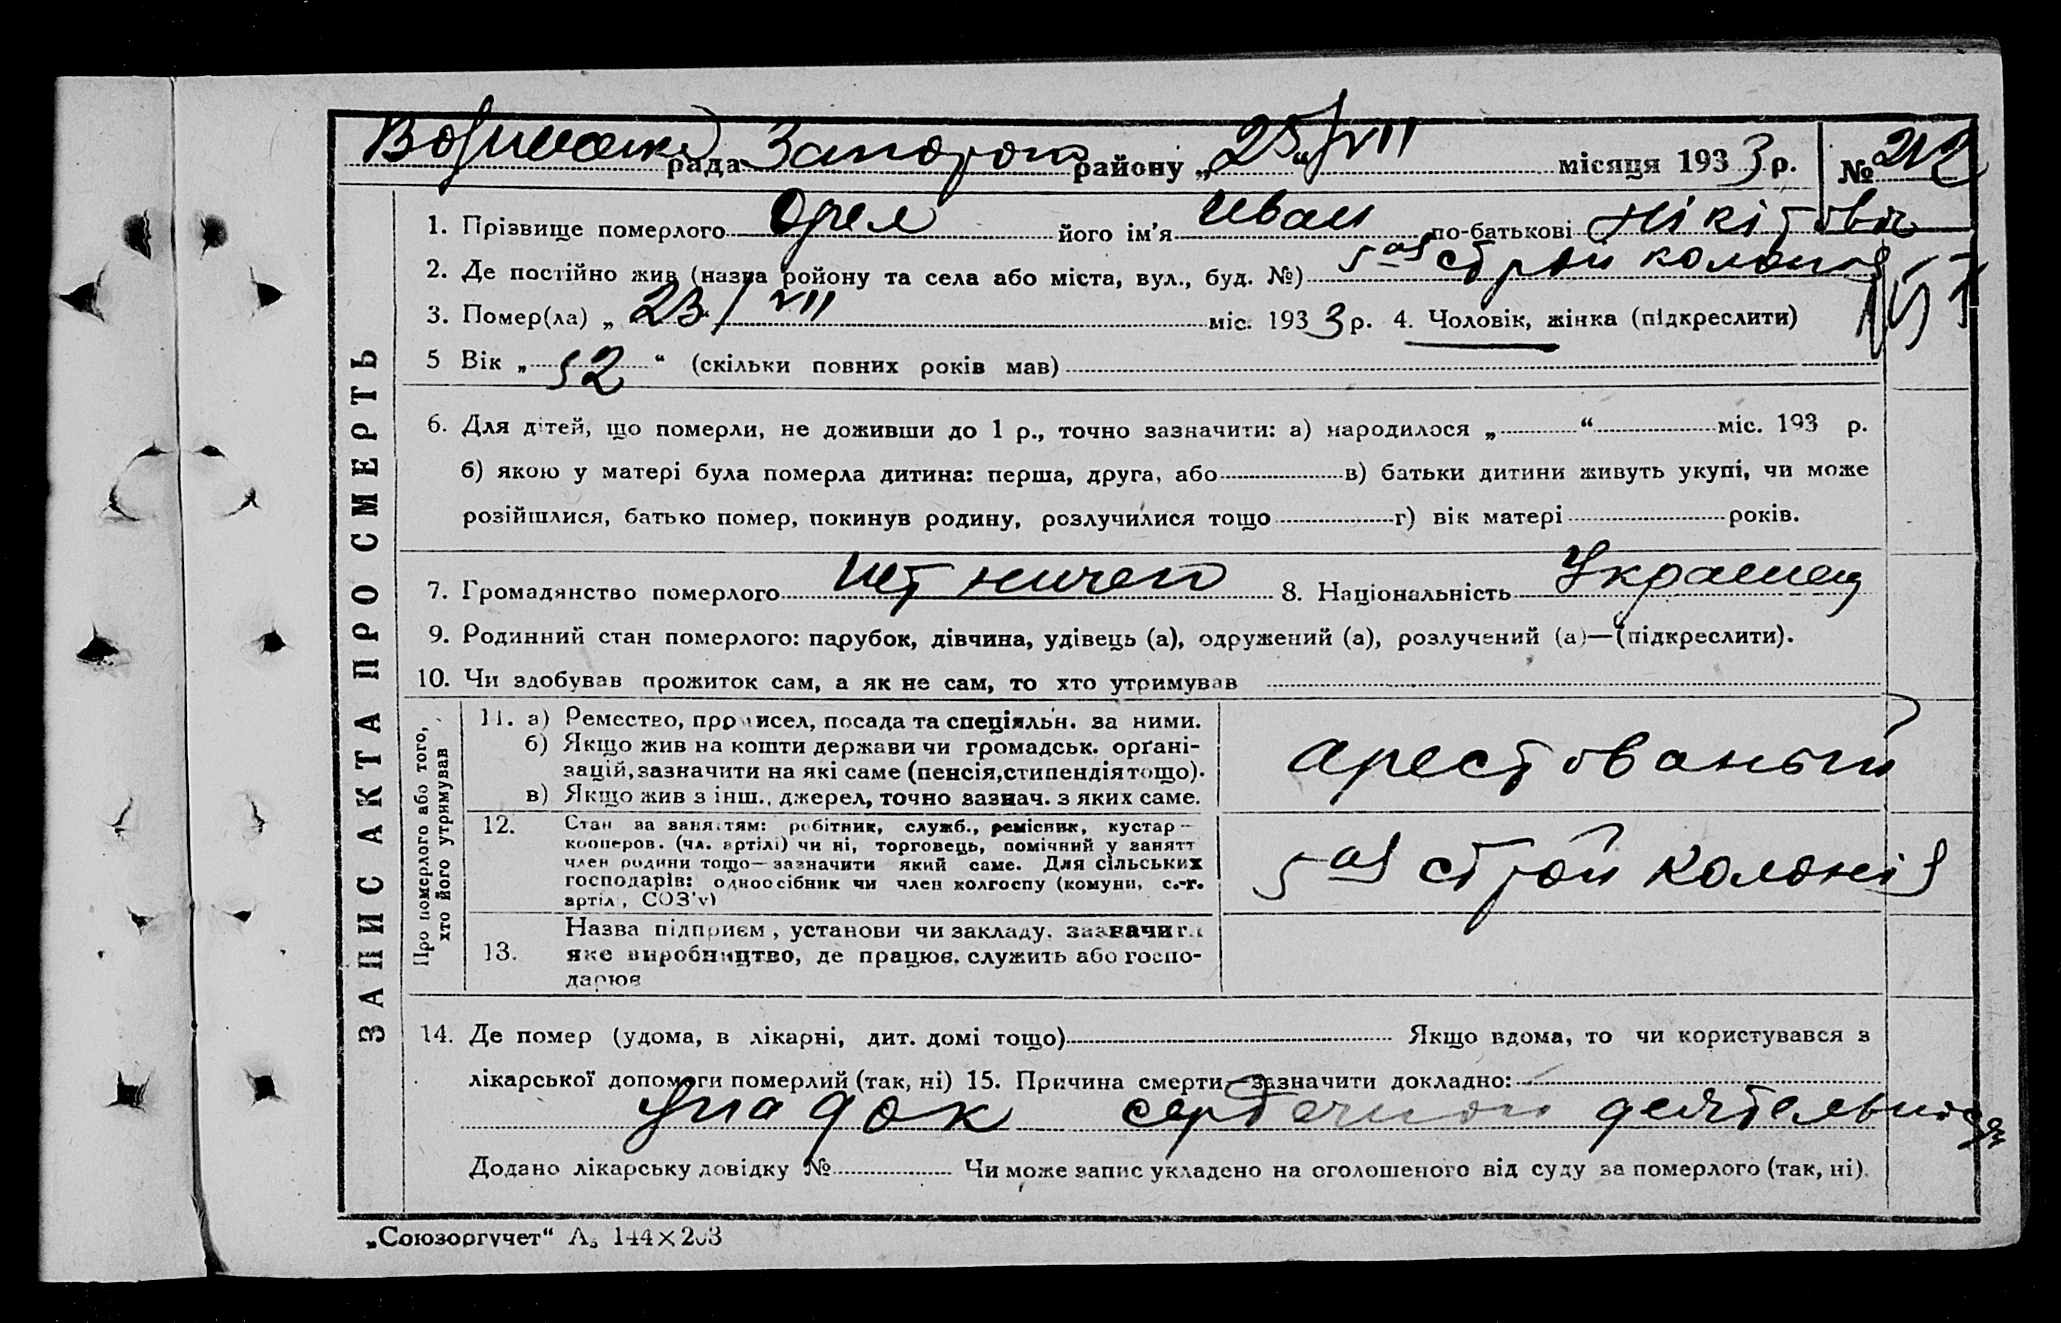 рада Запорож району „25“/VII місяця 1933 р. № 212
1. Прізвище померлого Орел його ім'я Иван по-батькові Нікітович
2. Де постійно жив (назва ройону та села або міста, вул., буд. №) 5ая строй колония
3. Помер(ла) „23/VII міс. 1933 р. 4. Чоловік, жінка (підкреслити)
157
5 Вік „52“ (скільки повних років мав)
6. Для дітей, що померли, не доживши до 1 р., точно зазначити: а) народилося „ “ міс. 193 р.
б) якою у матері була померла дитина: перша, друга, або в) батьки дитини живуть укупі, чи може
розійшлися, батько помер, покинув родину, розлучилися тощо г) вік матері років.
7. Громадянство померлого нет ничего 8. Національність Украинец
9. Родинний стан померлого: парубок, дівчина, удівець (а), одружений (а), розлучений (а)—(підкреслити).
10. Чи здобував прожиток сам, а як не сам, то хто утримував
ЗАПИС АКТА ПРО СМЕРТЬ
Про померлого або того,
хто його утримував
11. а) Ремество, промисел, посада та спеціяльн. за ними.
б) Якщо жив на кошти держави чи громадськ. орґані-
зацій, зазначити на які саме (пенсія, стипендія тощо).
в) Якщо жив з інш., джерел, точно зазнач. з яких саме.
арестованый
12. Стан за заняттям: робітник, служб., ремісник, кустар—
кооперов. (чл. артілі) чи ні, торговець, помічний у занятт
член родини тощо—зазначити який саме. Для сільських
господарів: одноосібник чи член колгоспу (комуни, с.-г.
артілі, СОЗ'у)
5ая строй колонія
13. Назва підприєм, установи чи закладу, зазначити
яке виробництво, де працює, служить або госпо-
дарює
14. Де помер (удома, в лікарні, дит. домі тощо) Якщо вдома, то чи користувався з
лікарської допомоги померлий (так, ні) 15. Причина смерти, зазначити докладно:
упадок сердечной деятельности
Додано лікарську довідку № Чи може запис укладено на оголошеного від суду за померлого (так, ні).
„Союзоргучет“ А₅ 144×203